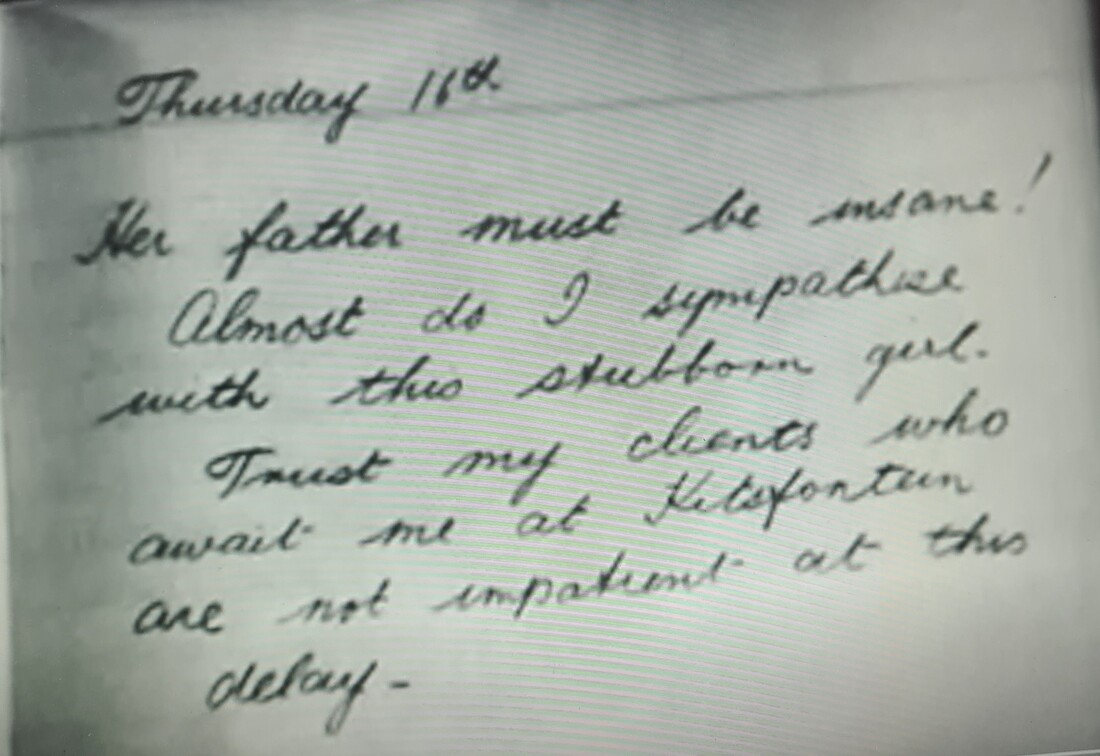 Thursday 16th
Her father must be insane!
Almost do I sympathise
with this stubborn girl.
Trust my clients who
await me at Kitsfontein
are not impatient at this
delay -